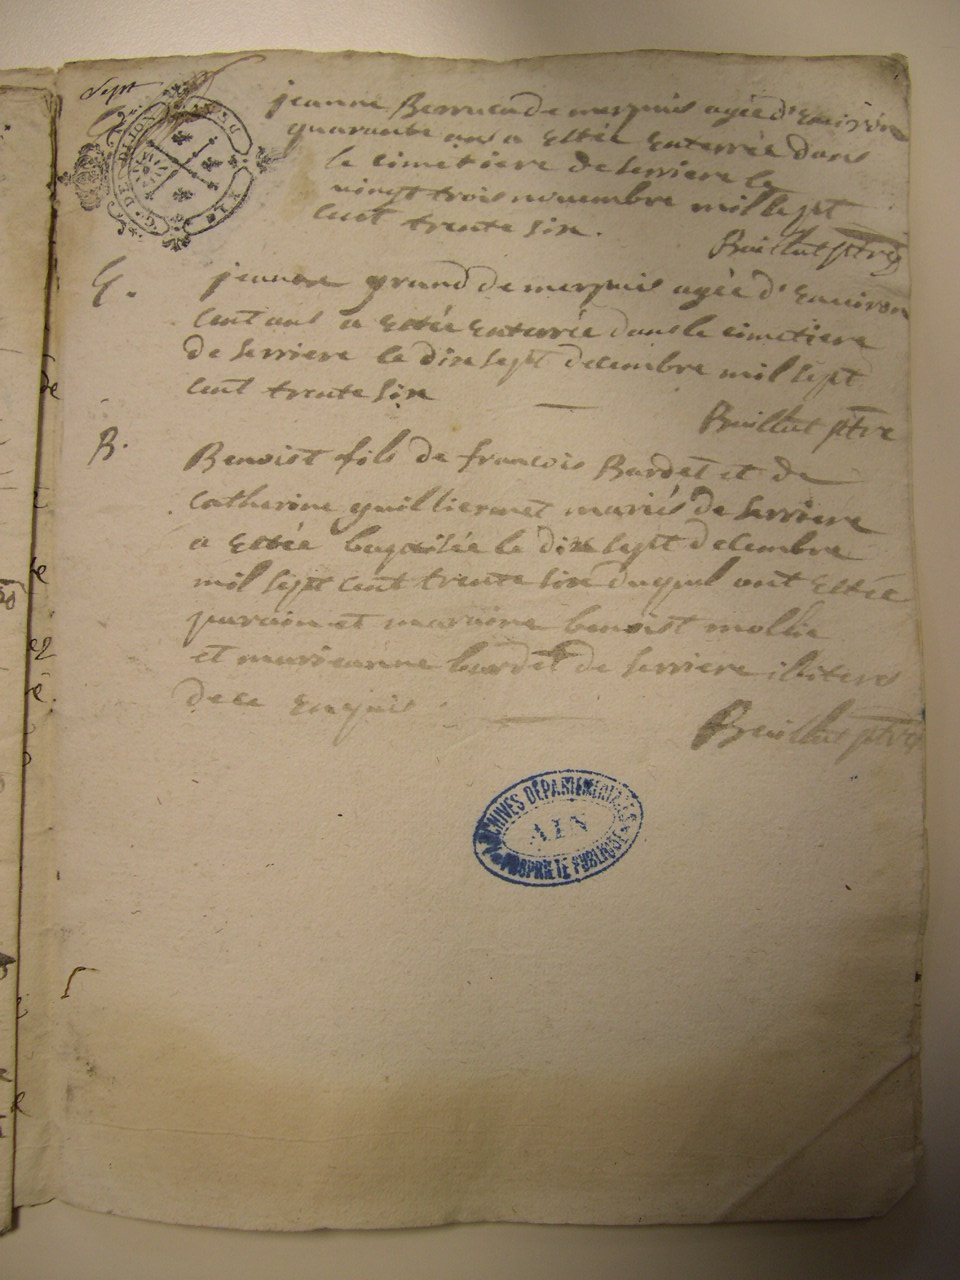 Sept
Gn. DE DIJON
jeanne de merpuis agée d'Environ
quarante ans a Estée Enterrée dans
le cimetiere de serriere le
vingt trois nouembre mil sept
cent trente six.
Buillut ptre
G.
jeanne grand de merpuis agée d'Enuiron
cent ans a Estée Enterrée dans le cimetiere
de serriere le dix sept decembre mil sept
cent trente six
Buillut ptre
B.
Benoist fils de francois Bardet et de
catherine guilliermet mariés de serriere
a Estée baptisée le dix sept decembre
mil sept cent trente six duquel ont Estée
parain et maraine benoist mollie
et marieanne bardet de serriere
de ce
Buillut ptre
ARCHIVES DÉPARTEMENTALES
AIN
PROPRIÉTÉ PUBLIQUE